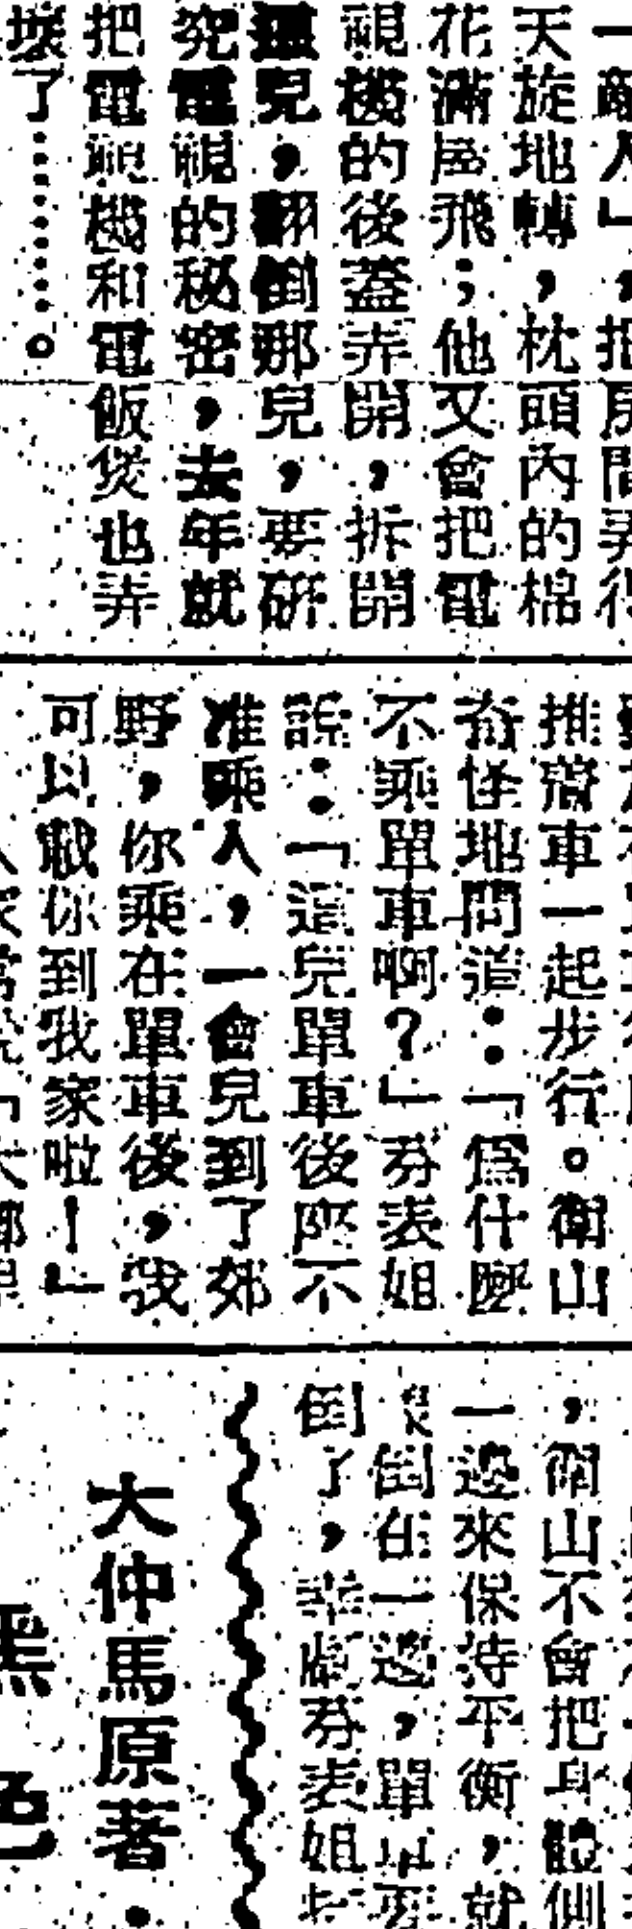 一敵人」，把房間弄得
天旋地轉，枕頭內的棉
花滿屋飛；他又會把電
視機的後蓋弄開，拆開
這兒，翻倒那兒，要研
究電視的秘密，去年就
把電視機和電飯煲也弄
壞了………。
推着車一起步行。衛山
奇怪地問道：「爲什麼
不乘單車啊？」芬表姐
說：「這兒單車後座不
准乘人，一會兒到了郊
野，你乘在單車後，我
可以載你到我家啦！」
，衛山不會把身體側
一邊來保持平衡，就
倒在一邊，單車
倒了，幸虧芬表姐
大仲馬原著·
黑色